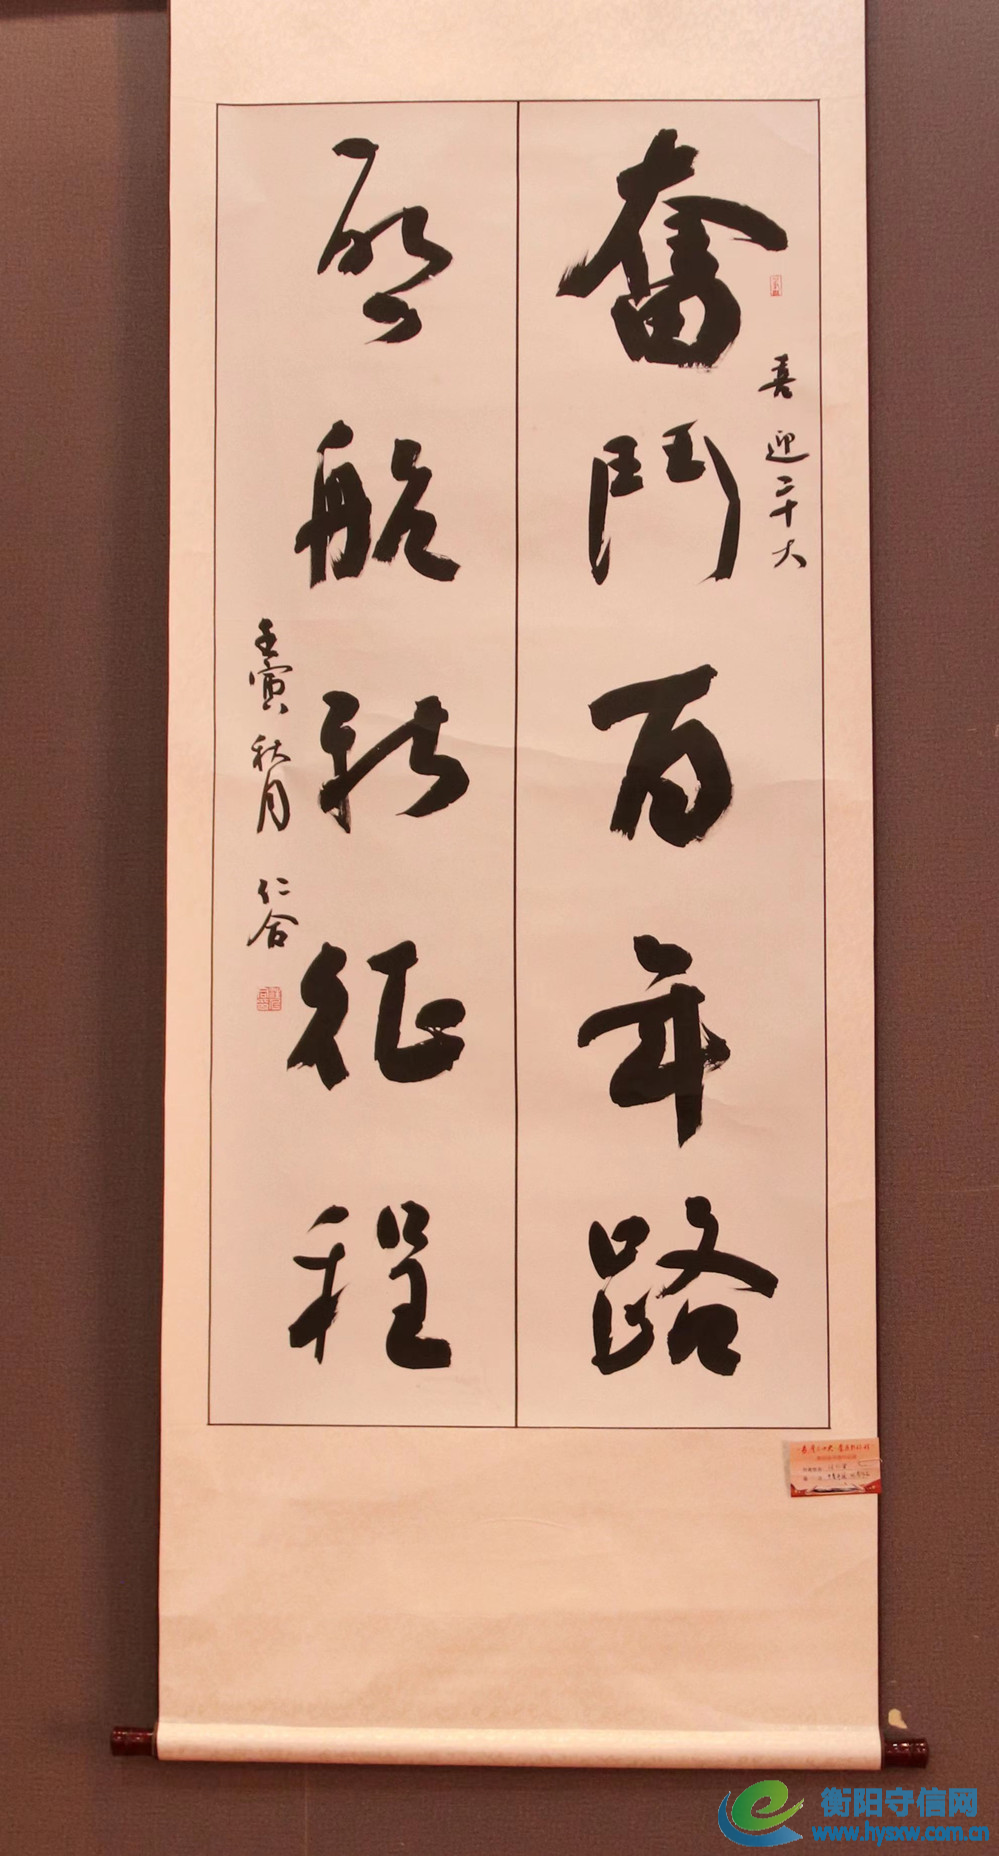 喜迎二十大
奮鬥百年路
启航新征程
壬寅秋月 仁合
衡阳守信网
www.hysxw.com.cn